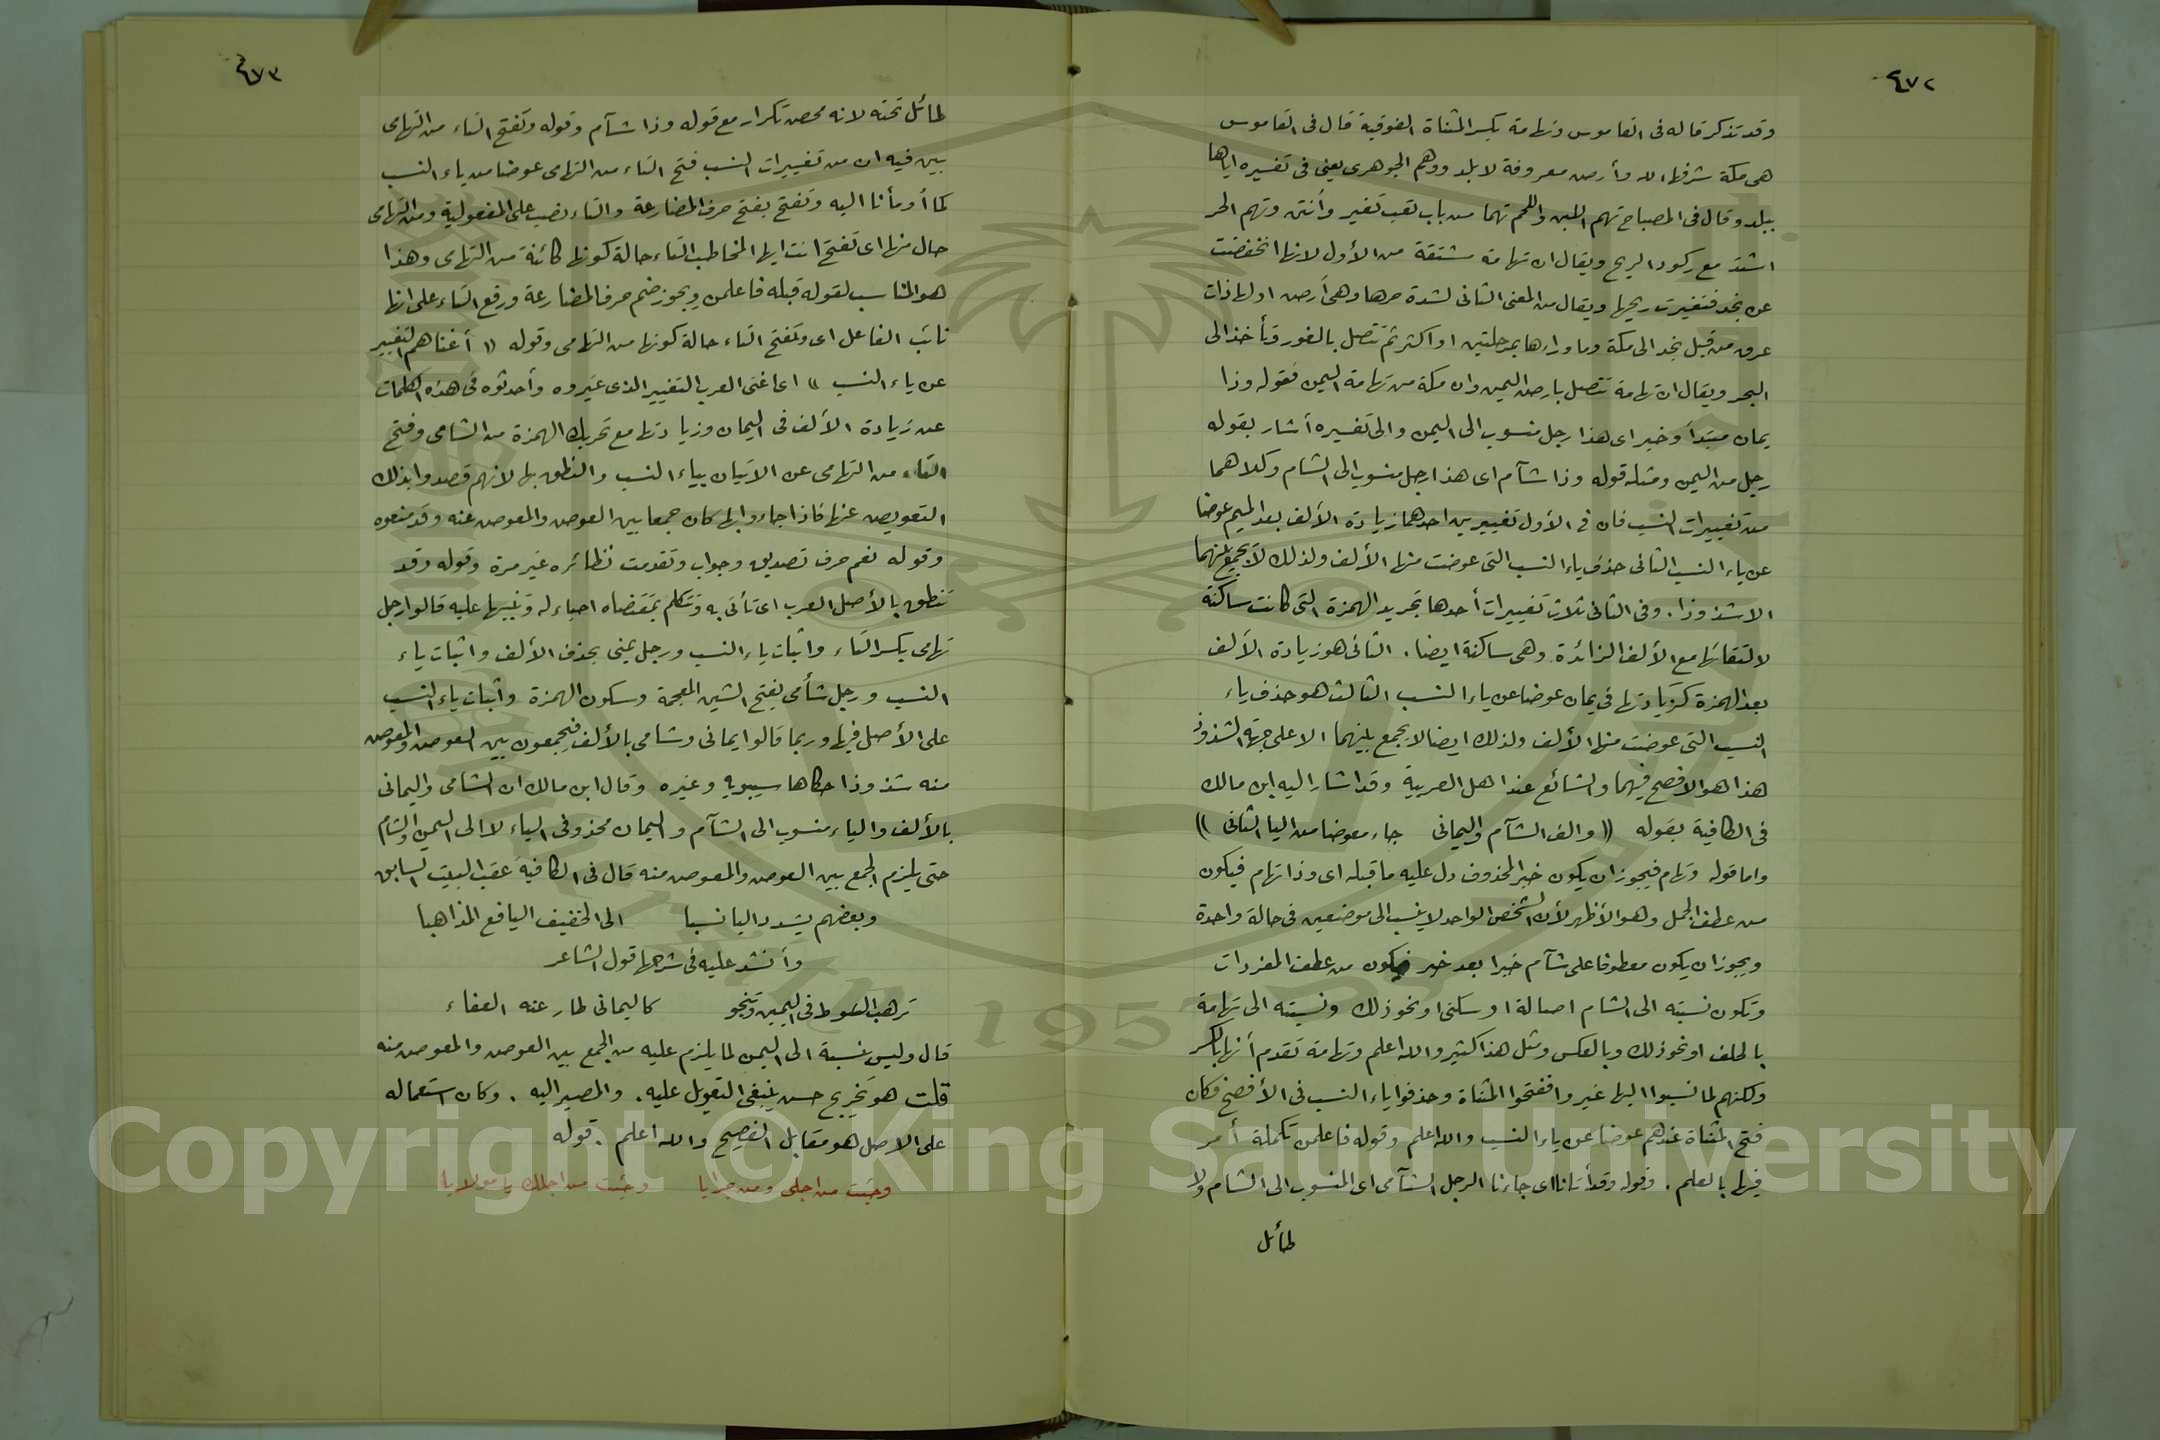 ٤٧٢
وقد تذكر قاله فى القاموس وتهامة بكسر المثناة الفوقية قال فى القاموس
هى مكة شرفها الله وأرض معروفة لا بلد ووهم الجوهرى يعنى فى تفسيره اياها
ببلد وقال فى المصباح تهم اللبن واللحم تهما من باب تعب تغير وأنتن وتهم الحر
اشتد مع ركود الريح ويقال ان تهامة مشتقة من الأول لانها انخفضت
عن نجد فتغيرت ريحها ويقال من المعنى الثانى لشدة حرها وهى أرض اولها ذات
عرق من قبل نجد الى مكة وما وراءها بمرحلتين او اكثر ثم تتصل بالغور وتأخذ الى
البحر ويقال ان تهامة تتصل بارض اليمن وان مكة من تهامة اليمن فقوله وذا
يمان مبتدأ وخبر اى هذا رجل منسوب الى اليمن والى تفسيره أشار بقوله
رجل من اليمن ومثله قوله وذا شآم اى هذا رجل منسوب الى الشام وكلاهما
من تغييرات النسب فان فى الأول تغييرين احدهما زيادة الألف بعد الميم عوضا
عن ياء النسب الثانى حذف ياء النسب التى عوضت منها الألف ولذلك لا يجمع بينهما
الا شذوذا . وفى الثانى ثلاث تغييرات أحدها تحريك الهمزة التى كانت ساكنة
لالتقائها مع الألف الزائدة وهى ساكنة ايضا . الثانى هو زيادة الألف
بعد الهمزة كزيادتها فى يمان عوضا عن ياء النسب الثالث هو حذف ياء
النسب التى عوضت منها الألف ولذلك ايضا لا يجمع بينهما الا على جهة الشذوذ
هذا هو الافصح فيهما والشائع عند اهل العربية وقد اشار اليه ابن مالك
فى الكافية بقوله (( والف الشآم واليمانى جاء معوضا من اليا الثانى ))
واما قوله وتهام فيجوز ان يكون خبر المحذوف دل عليه ما قبله اى وذا تهام فيكون
من عطف الجمل وهو الأظهر لأن الشخص الواحد لا ينسب الى موضعين فى حالة واحدة
ويجوز ان يكون معطوفا على شآم خبرا بعد خبر فيكون من عطف المفردات
وتكون نسبته الى الشام اصالة او سكنى او نحو ذلك ونسبته الى تهامة
بالحلف او نحو ذلك وبالعكس ومثل هذا كثير والله اعلم وتهامة تقدم أنها بالكسر
ولكنهم لما نسبوا اليها غيروا ففتحوا المثناة وحذفوا ياء النسب فى الأفصح فكان
فتح المثناة عندهم عوضا عن ياء النسب والله اعلم وقوله فاعلمن تكملة أمر
فيها بالعلم . وقوله وقد أتانا اى جاءنا الرجل الشآمى اى المنسوب الى الشام ولا
طائل
٤٧٣
طائل تحته لانه محض تكرار مع قوله وذا شآم وقوله وتفتح التاء من التهامى
بين فيه ان من تغييرات النسب فتح التاء من التهامى عوضا من ياء النسب
كما أومأنا اليه وتفتح بفتح حرف المضارعة والتاء نصب على المفعولية ومن التهامى
حال منها اى تفتح انت ايها المخاطب التاء حالة كونها كائنة من التهامى وهذا
هو المناسب لقوله قبله فاعلمن ويجوز ضم حرف المضارعة ورفع التاء على انها
نائب الفاعل اى وتفتح التاء حالة كونها من التهامى وقوله (( أغناهم التغيير
عن ياء النسب )) اى اغنى العرب التغيير الذى غيروه وأحدثوه فى هذه الكلمات
من زيادة الألف فى اليمان وزيادتها مع تحريك الهمزة من الشامى وفتح
التاء من التهامى عن الاتيان بياء النسب والنطق بها لانهم قصدوا بذلك
التعويض عنها فاذا جاءوا بها كان جمعا بين العوض والمعوض عنه وقد منعوه
وقوله نعم حرف تصديق وجواب وتقدمت نظائره غير مرة وقوله وقد
تنطق بالأصل العرب اى تأتى به وتتكلم بمقتضاه احياء له وتنبيها عليه قالوا رجل
تهامى بكسر التاء واثبات ياء النسب ورجل يمنى بحذف الألف واثبات ياء
النسب ورجل شأمى بفتح الشين المعجمة وسكون الهمزة واثبات ياء النسب
على الأصل فيها وربما قالوا يمانى وشامى بالألف فيجمعون بين العوض والمعوض
منه شذوذا حكاها سيبويه وغيره وقال ابن مالك ان الشامى واليمانى
بالألف والياء منسوب الى الشآم واليمان محذوفى الياء لا الى اليمن والشام
حتى يلزم الجمع بين العوض والمعوض منه قال فى الكافية عقب البيت السابق
وبعضهم يشدد اليا ناسبا الى الخفيف اليا فع المذاهبا
وأنشد عليه فى شرحها قول الشاعر
ترهب السوط فى اليمين وتنجو كاليمانى طار عنه العفاء
قال وليس نسبة الى اليمن لما يلزم عليه من الجمع بين العوض والمعوض منه
قلت هو تخريج حسن ينبغى التعويل عليه . والمصير اليه . وكان استعماله
على الاصل هو مقابل الفصيح والله اعلم . قوله
وجئت من اجلى ومن جرايا وجئت من اجلك يا مولايا
Copyright © King Saud University
1957